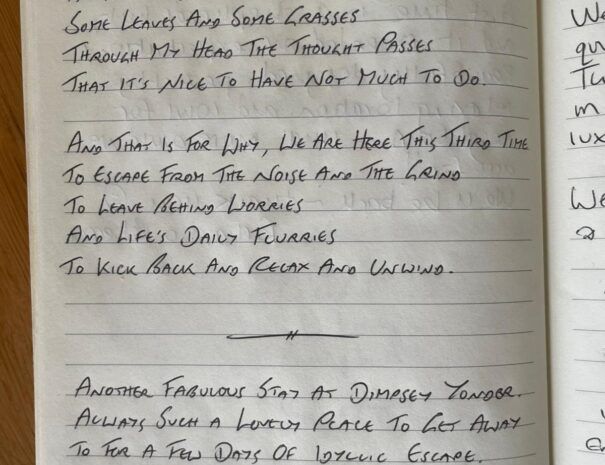 Some Leaves And Some Grasses
Through My Head The Thought Passes
That It's Nice To Have Not Much To Do.
And That Is For Why, We Are Here This Third Time
To Escape From The Noise And The Grind
To Leave Behind Worries
And Life's Daily Flurries
To Kick Back And Relax And Unwind.
Another Fabulous Stay At Dimpsey Yonder.
Always Such A Lovely Place To Get Away
To For A Few Days Of Idyllic Escape.
We
qu
m
lux
We